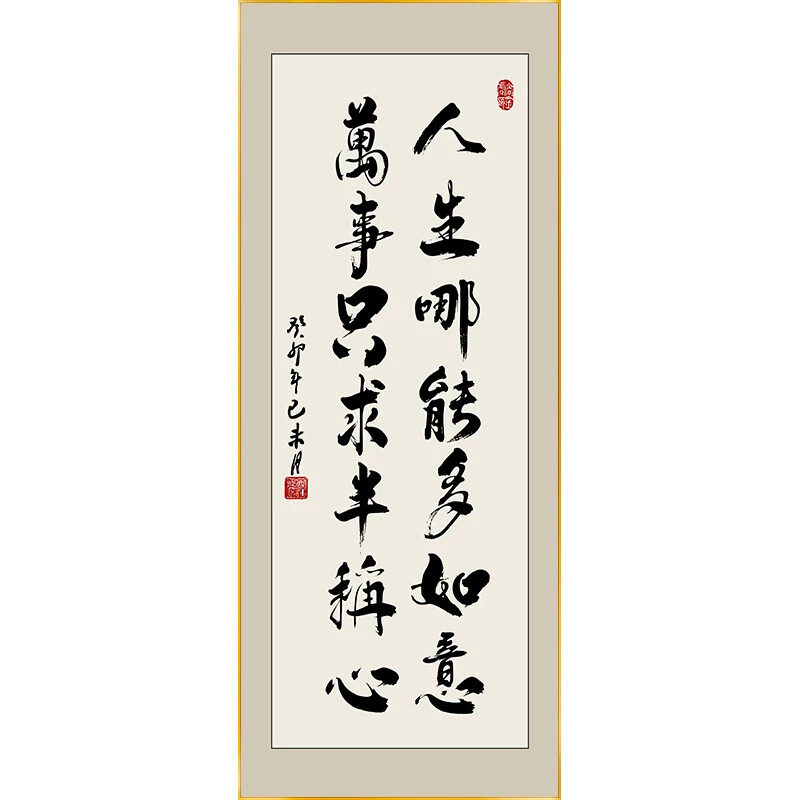 人生哪能多如意
萬事只求半稱心
癸卯年己未月